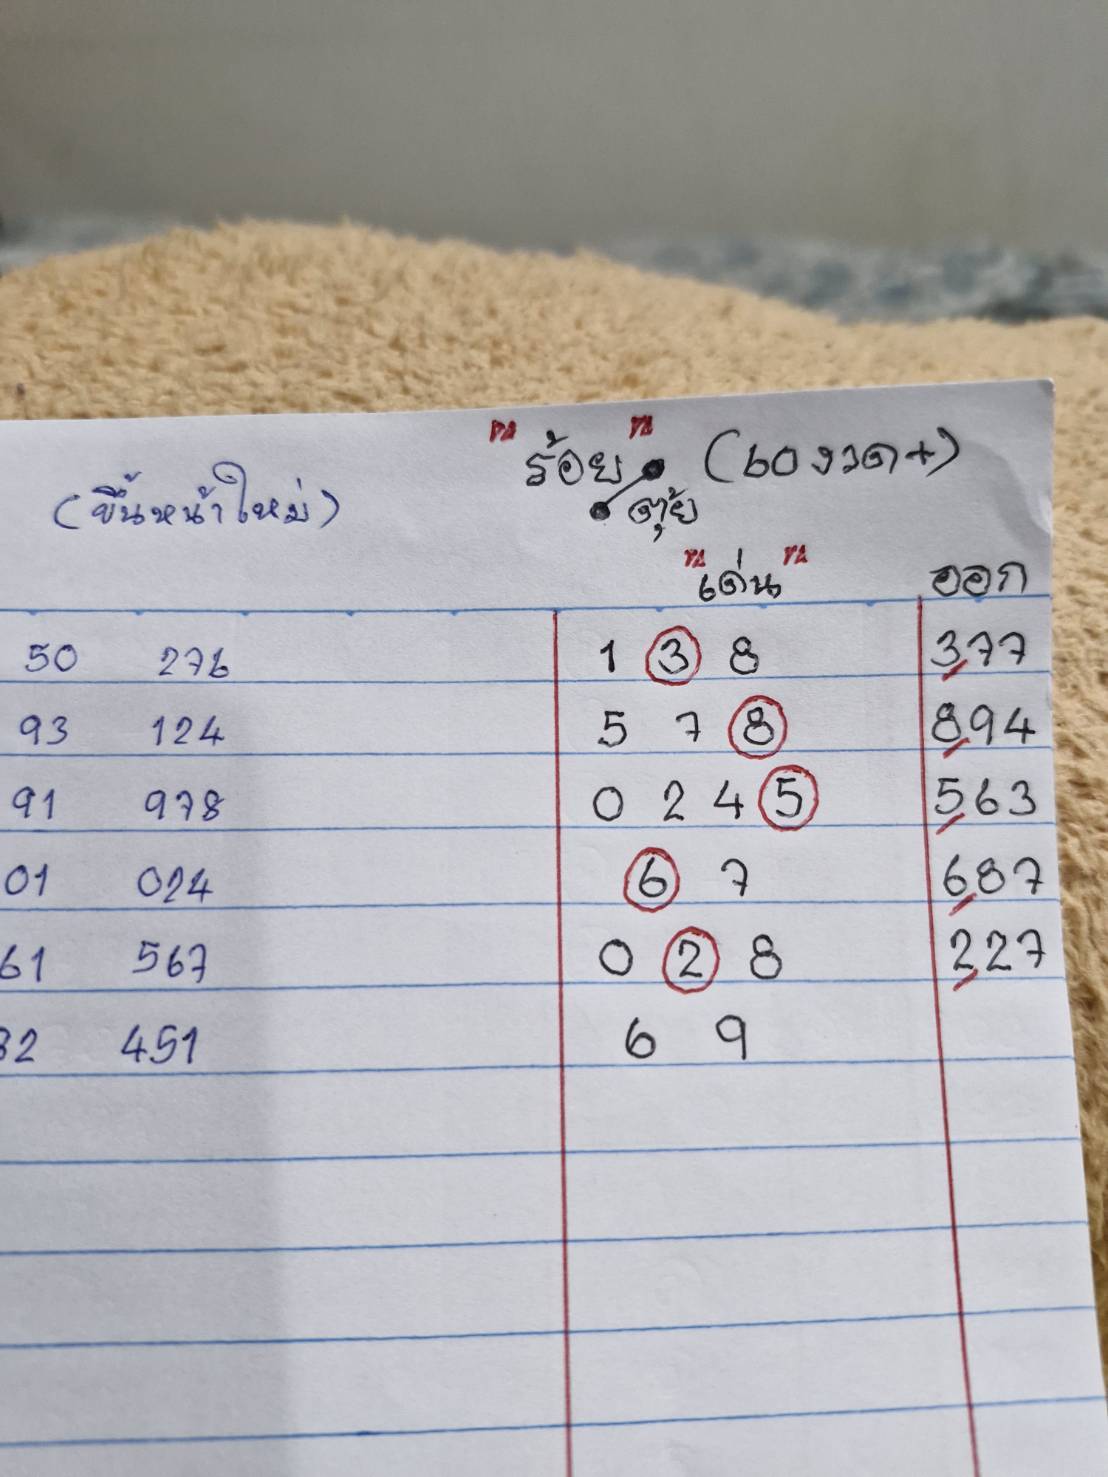 "ร้อย" (60 งวด+)
(ขึ้นหน้าใหม่) ตุ้ย
"เด่น" ออก
50 276 1 3 8 377
93 124 5 7 8 894
91 978 0 2 4 5 563
01 024 6 7 687
61 567 0 2 8 227
32 451 6 9